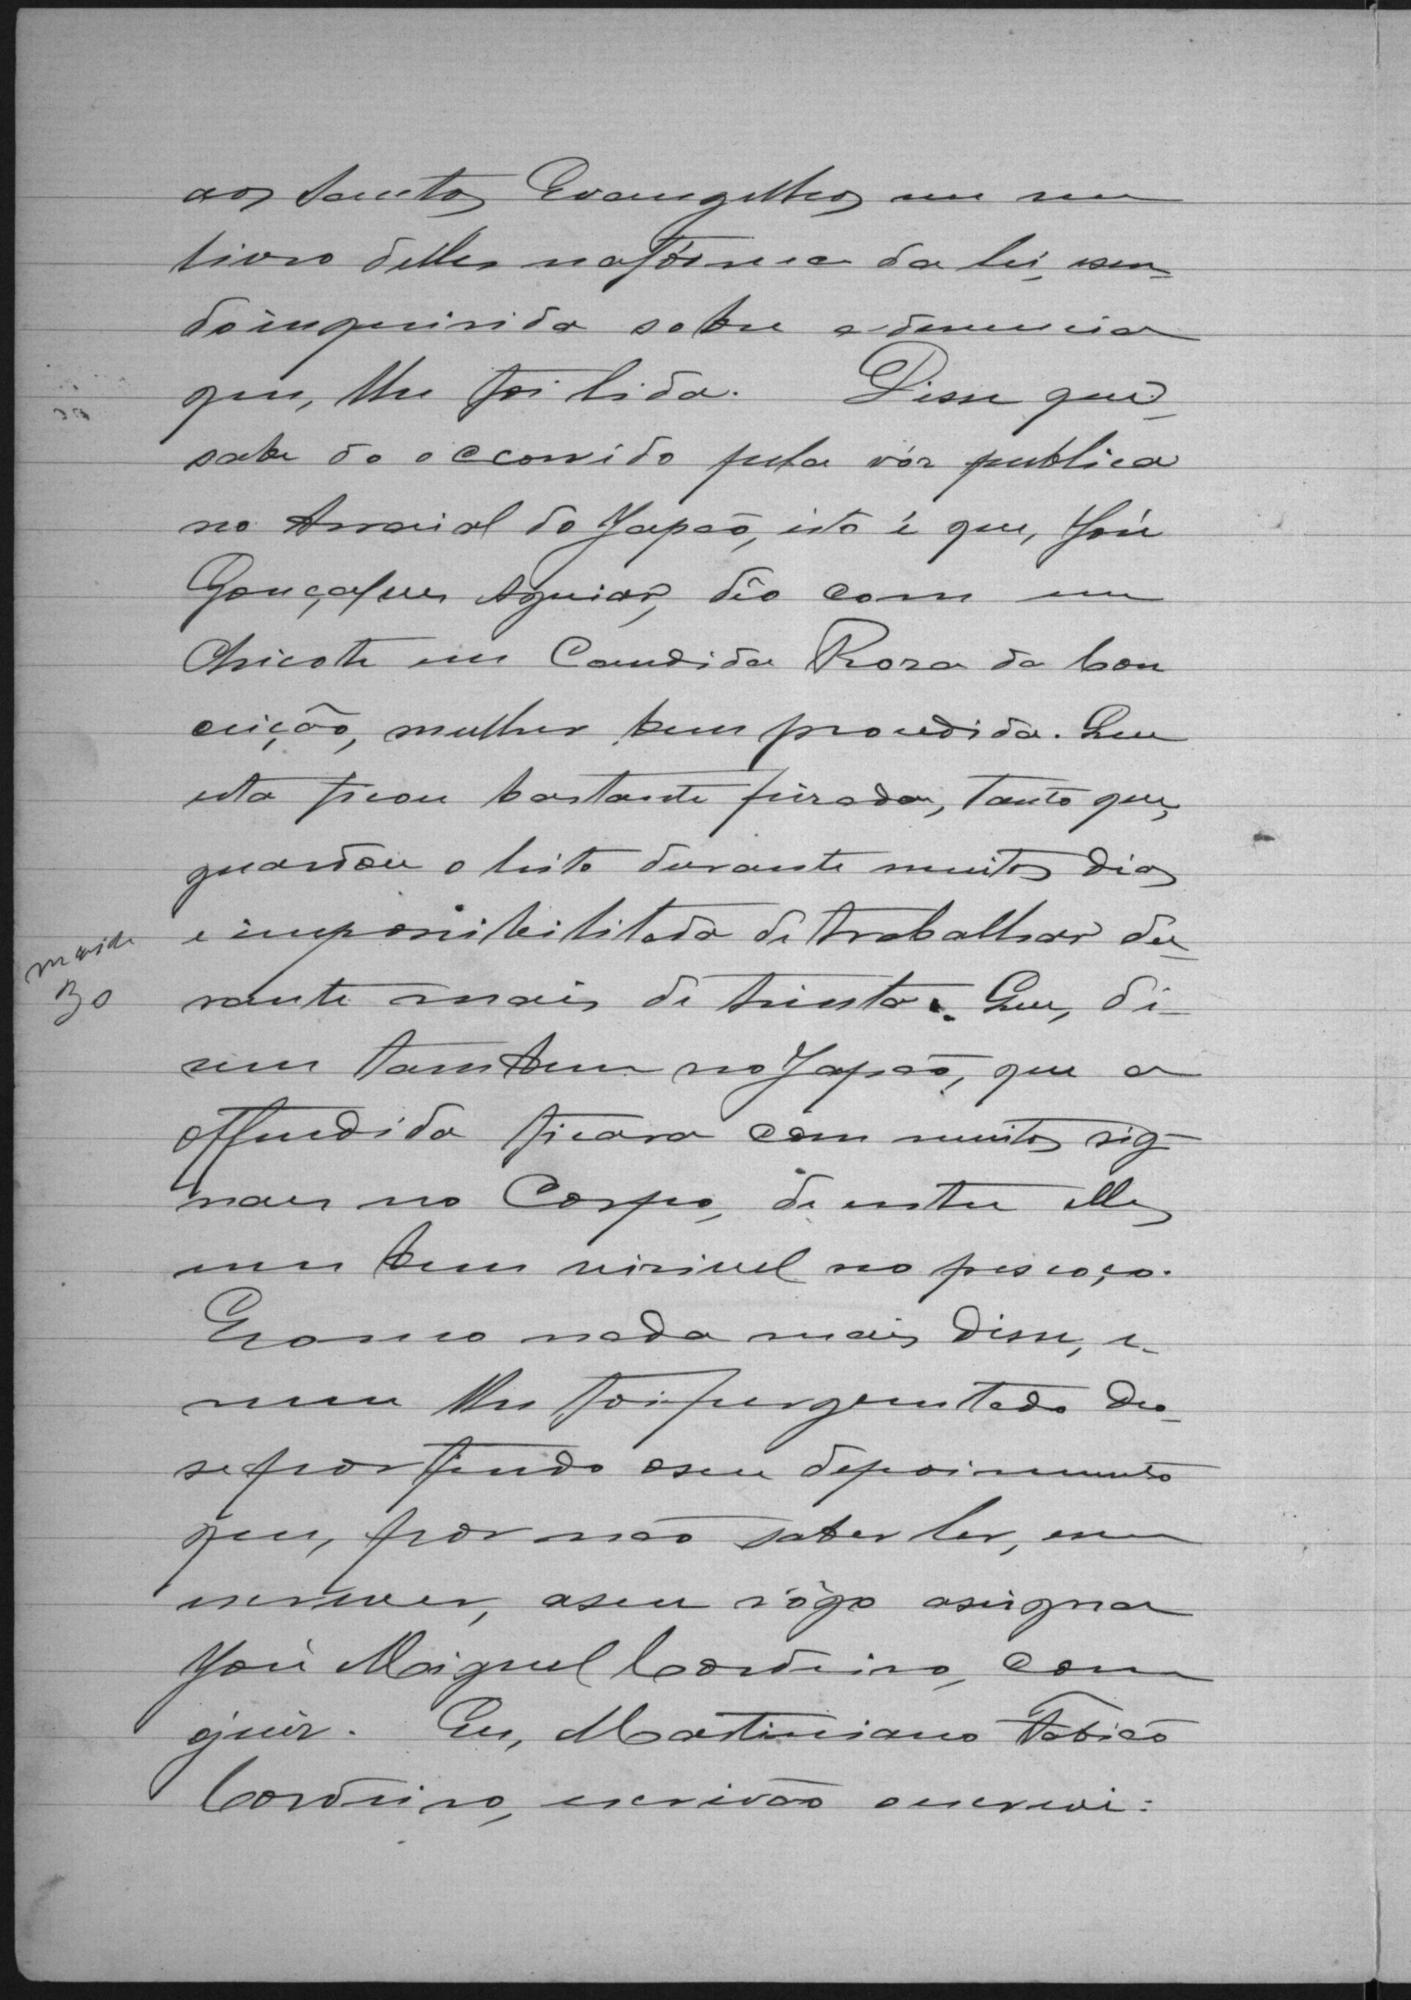 aos Santos Evangelhos em um
livro delles na fórma da lei, e sen-
do inquirida sobre a denuncia
que, lhe foi lida. Disse que,
sabe do occorrido pela vóz publica
no Arraial do Japão, isto é que, José
Gonçalves Aguiar, dêo com um
chicote em Candida Roza da Con
ceição, mulher bem procedida. Que
esta ficou bastante firada, tanto que,
guardou o leito durante muitos dias
e impossibilitada de trabalhar du-
mais de
30
rante mais de trinta. Que, di-
zem tambem no Japão, que a
offendida ficara com muitos sig-
naes no Corpo, de entre elles
um bem visivel no pescoço.
E como nada mais disse, e-
nem lhe foi perguntado deo-
se por findo o seu depoimento
que, por não saber ler, nem
escrever, a seu rôgo assigna
José Miguel Cordeiro, com
o juiz. Eu, Martiniano Fabião
Cordeiro, escrivão o escrevi: